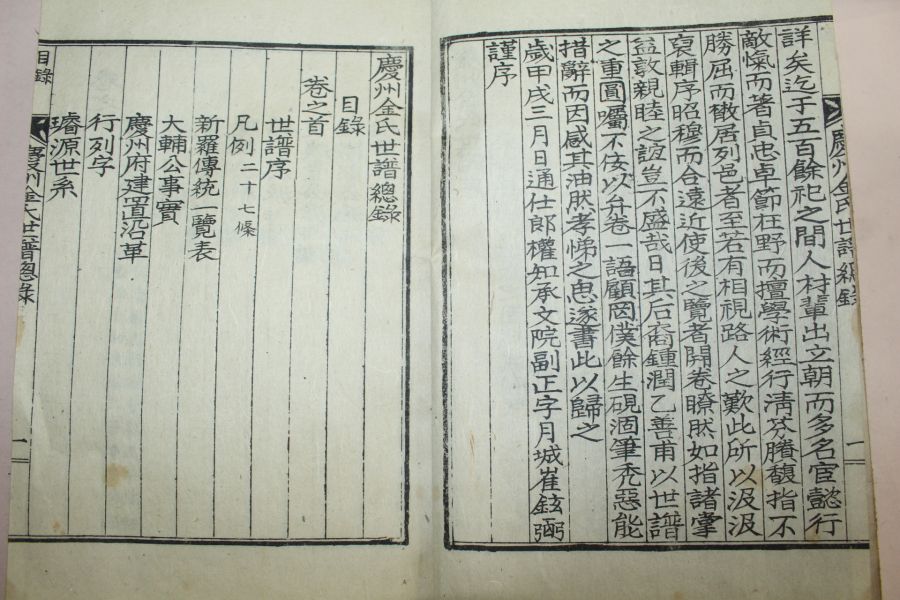 詳矣迄于五百餘祀之間人材輩出立朝而多名宦懿行
敵愾而著貞忠卓節在野而擅學術經行淸芬騰馥指不
勝屈而橵居列邑者至若有相視路人之歎此所以汲汲
裒輯序昭穆而合遠近使後之覽者開卷瞭然如指諸掌
益敦親睦之誼豈不盛哉日其后裔鍾潤乙善甫以世譜
之重圓囑不侫以弁卷一語顧罔僕餘生硯涸筆禿惡能
措辭而因感其油然孝悌之思遂書此以歸之
歲甲戌三月日通仕郞權知承文院副正字月城崔鉉弼
謹序
慶州金氏世譜總錄
一
慶州金氏世譜總錄
目錄
卷之首
世譜序
凡例 二十七條
新羅傳統一覽表
大輔公事實
慶州府建置沿革
行列字
璿源世系
目錄
慶州金氏世譜總錄
一